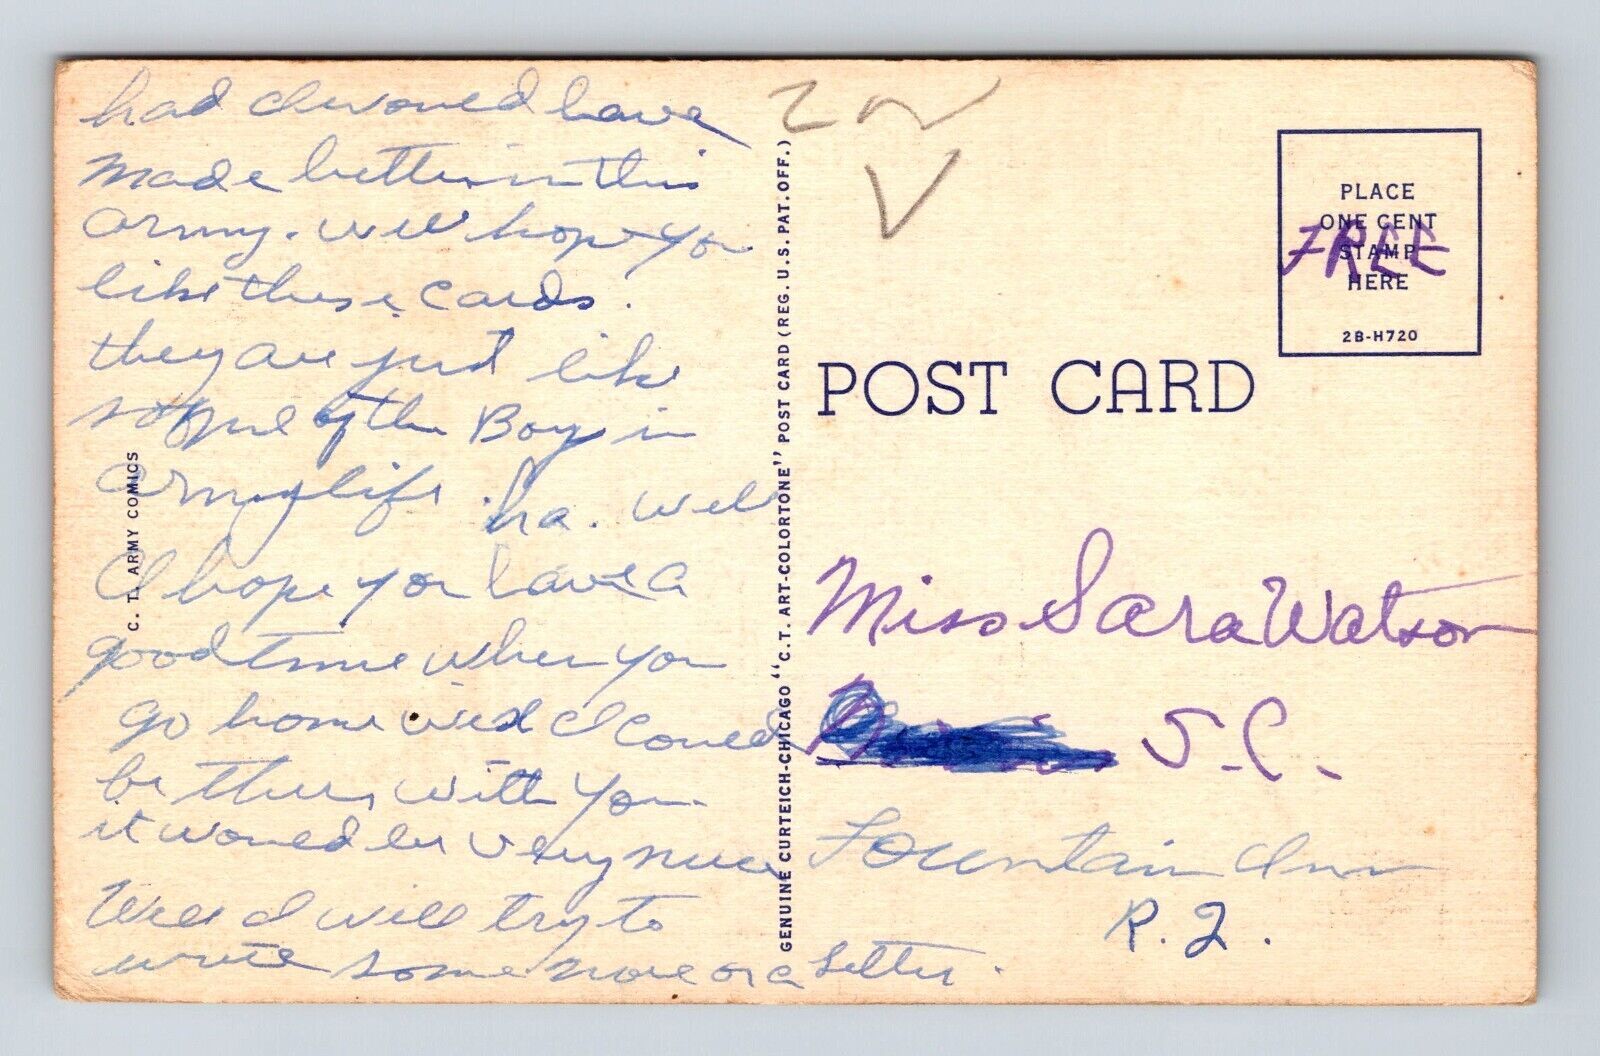 had I would have
made better in this
army. well hope you
like these cards.
they are just like
some of the Boys in
army life. ha. Well
I hope you have a
good time when you
go home wish I could
be there with you.
it would be very nice
Well I will try to
write some more or a letter.
C. T. ARMY COMICS
GENUINE CURTEICH-CHICAGO "C. T. ART-COLORTONE" POST CARD (REG. U.S. PAT. OFF.)
PLACE
ONE CENT
STAMP
HERE
FREE
2B-H720
POST CARD
Miss Sara Watson
S.C.
Fountain Inn
R. 2.